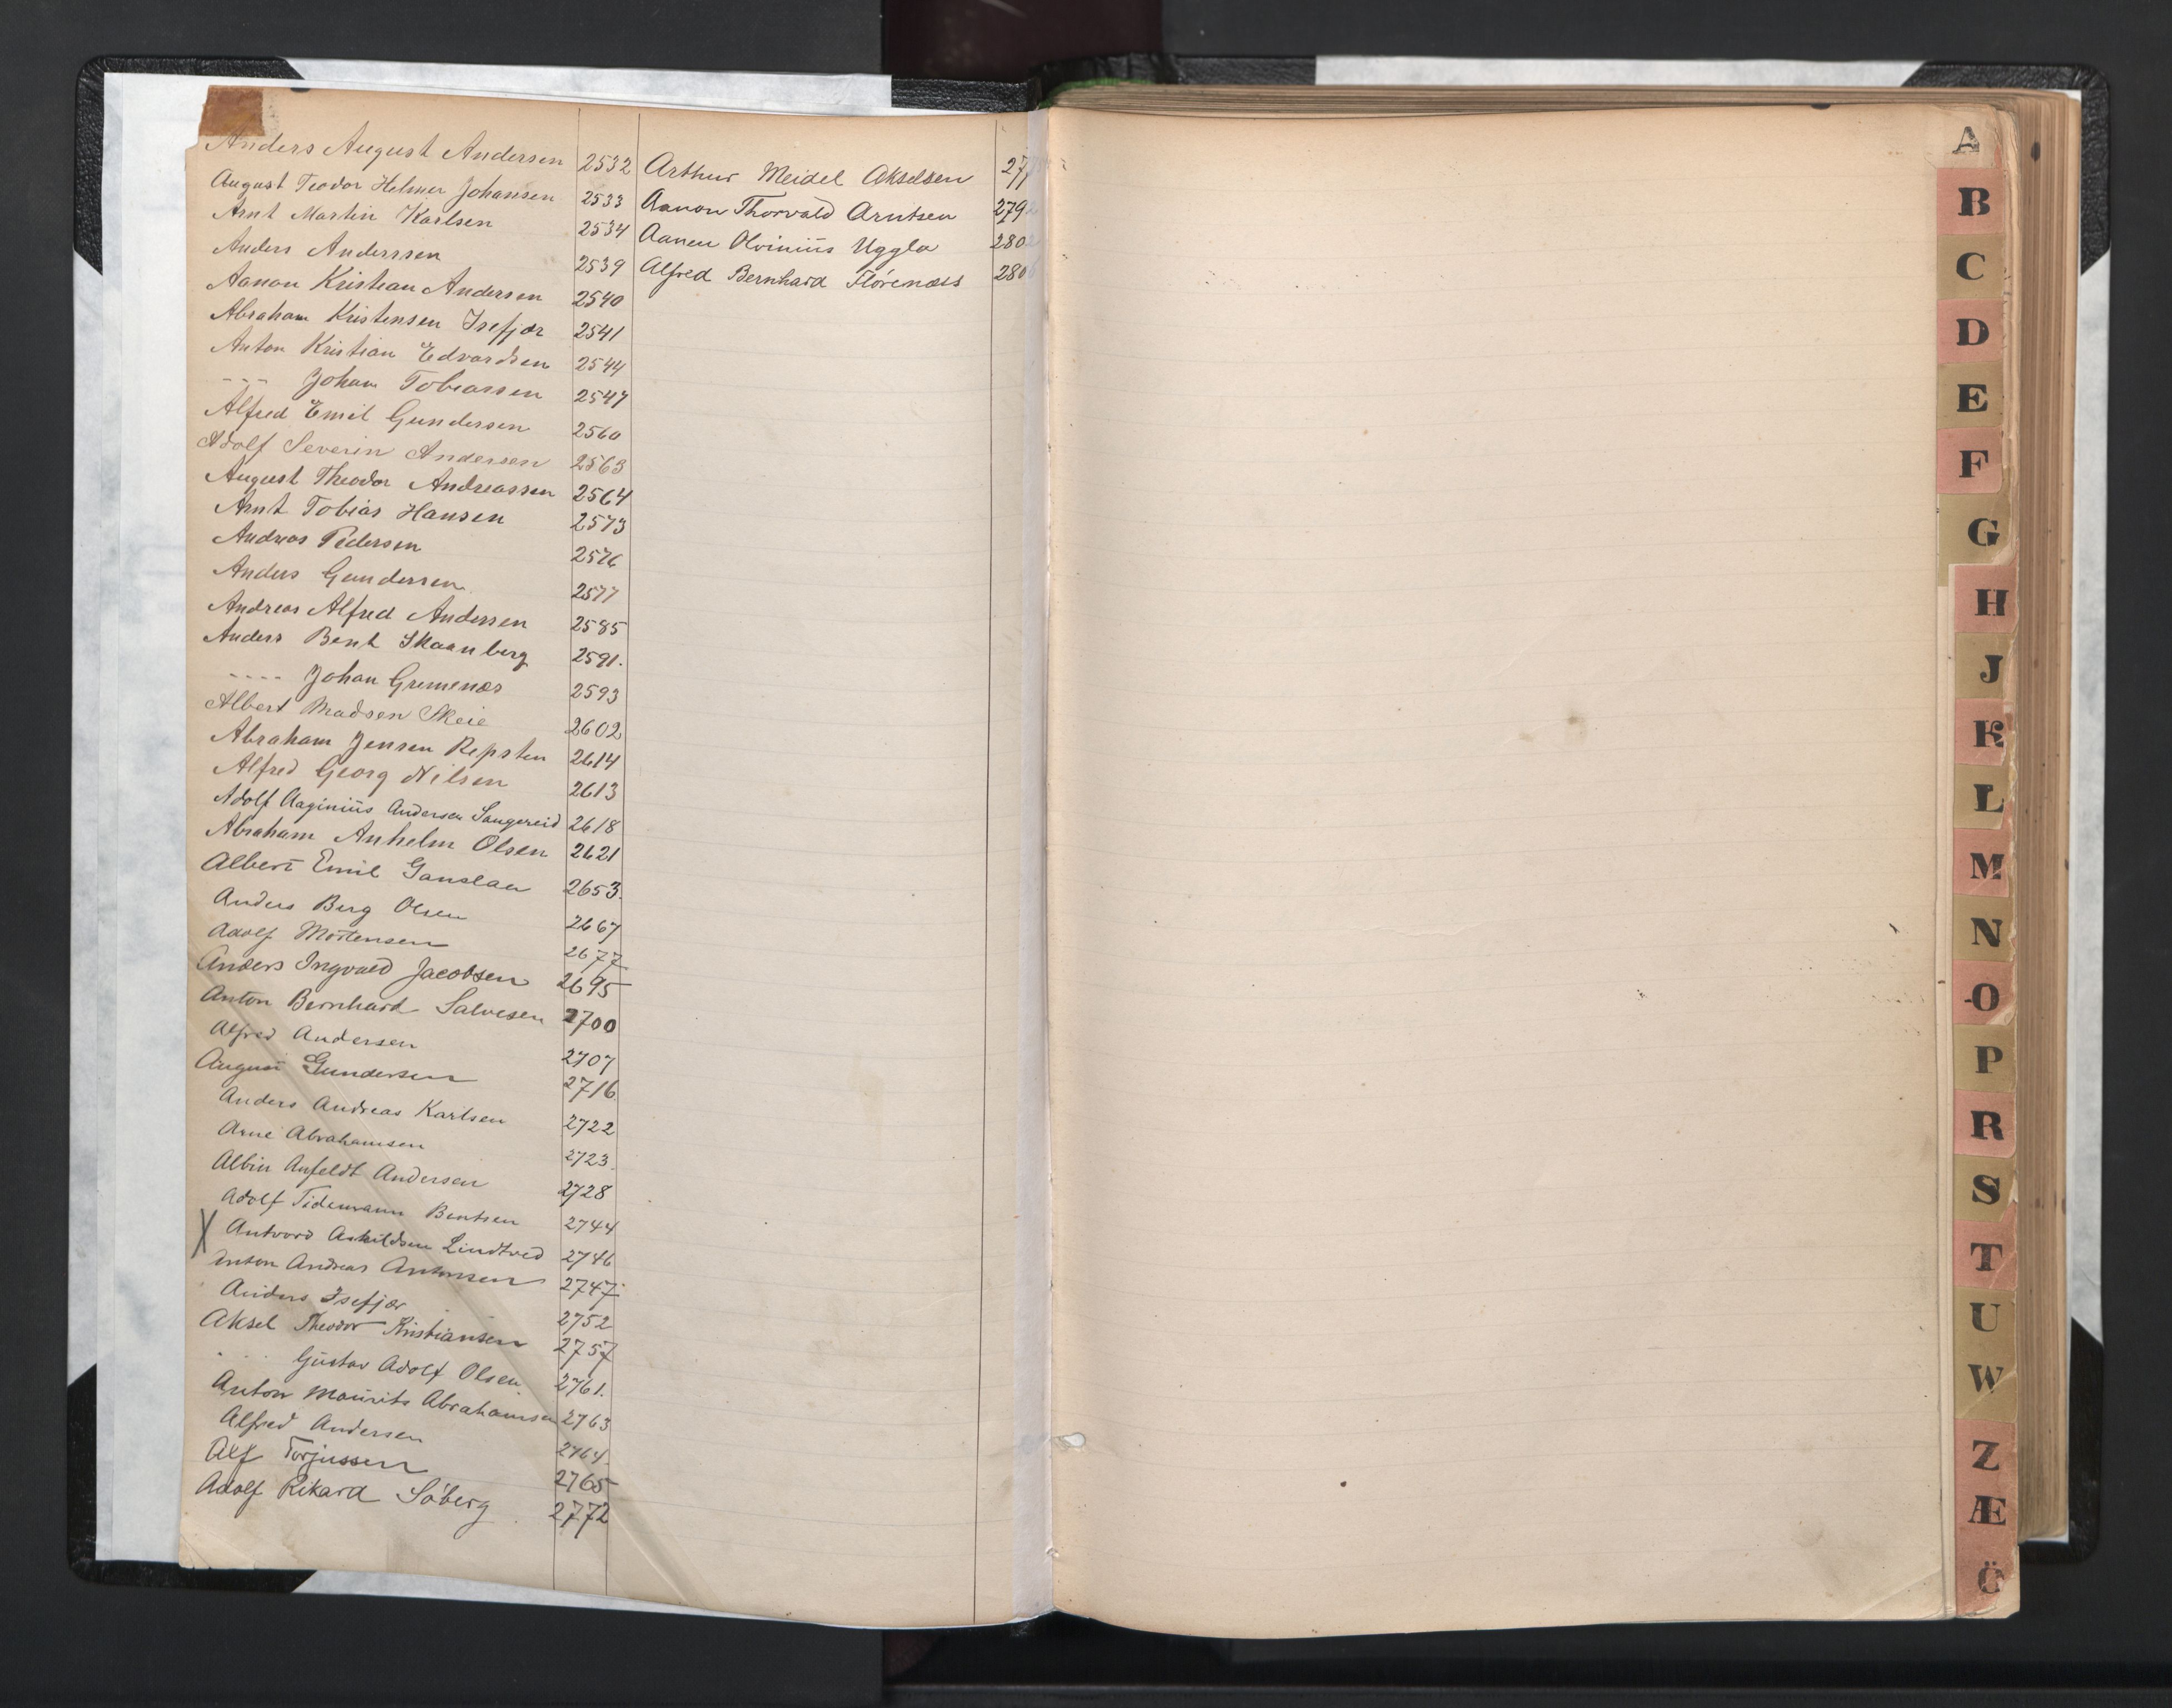 Anders August Andersen 2532
August Teodor Helmer Johansen 2533
Arnt Martin Karlsen 2534
Anders Anderssen 2539
Aanon Kristian Andersen 2540
Abraham Kristensen Isefjær 2541
Anton Kristian Edvardsen 2544
---- Johan Tobiassen 2547
Alfred Emil Gundersen 2560
Adolf Severin Andersen 2563
August Theodor Andreassen 2564
Arnt Tobias Hansen 2573
Andreas Pedersen 2576
Anders Gundersen 2577
Andreas Alfred Andersen 2585
Anders Bent Skaanberg 2591.
---- Johan Gremenæs 2593
Albert Madsen Skeie 2602
Abraham Jensen Repsten 2614
Alfred Georg Nilsen 2613
Adolf Aaginius Andersen Saugereid 2618
Abraham Anhelm Olsen 2621
Albert Emil Ganslau 2653.
Anders Berg Olsen 2667
Adolf Mortensen 2677
Anders Ingvald Jacobsen 2695
Anton Bernhard Salvesen 2700
Alfred Andersen 2707
August Gundersen 2716.
Anders Andreas Karlsen 2722
Arne Abrahamsen 2723.
Albin Anfeldt Andersen 2728
Adolf Tidemann Bentsen 2744
X Antvord Askildsen Lindtved 2746
Anton Andreas Antonsen 2747
Anders Isefjær 2752
Aksel Theodor Kristiansen 2757
Gustav Adolf Olsen 2761.
Anton Maurits Abrahamsen 2763
Alfred Andersen 2764.
Alf Torjussen 2765
Adolf Rikard Söberg 2772
Arthur Meidel Akselsen 27
Aanon Thorvald Arntsen 279
Aanen Olvinius Uggla 280
Alfred Bernhard Flörenæss 280
A
B
C
D
E
F
G
H
J
K
L
M
N
O
P
R
S
T
U
W
Z
Æ
Ö